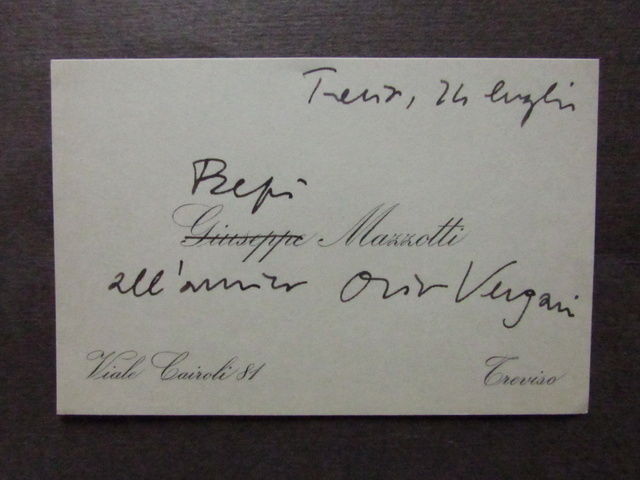 Treviso, 24 luglio
Bepi
Giuseppe Mazzotti
all'amico Orio Vergani
Viale Cairoli 81
Treviso